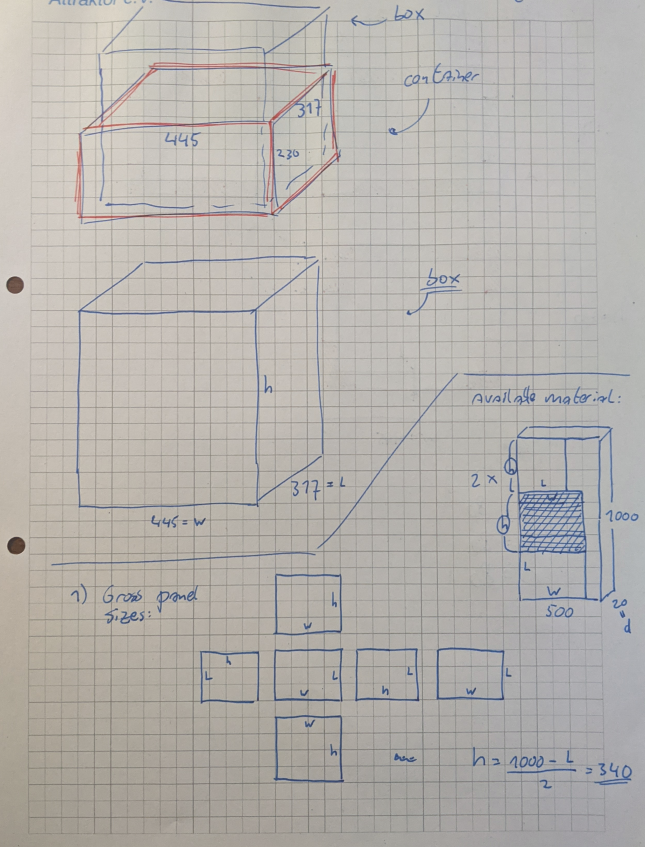 Attraktor e.V.
box
container
317
445
230
box
h
317 = L
445 = W
Available material:
2 x
h
L
L
h
1000
L
W
500
20
d
1) Gross panel
sizes:
h
w
h
L
L
w
L
h
L
w
w
h
h = 1000 - L / 2 = 340